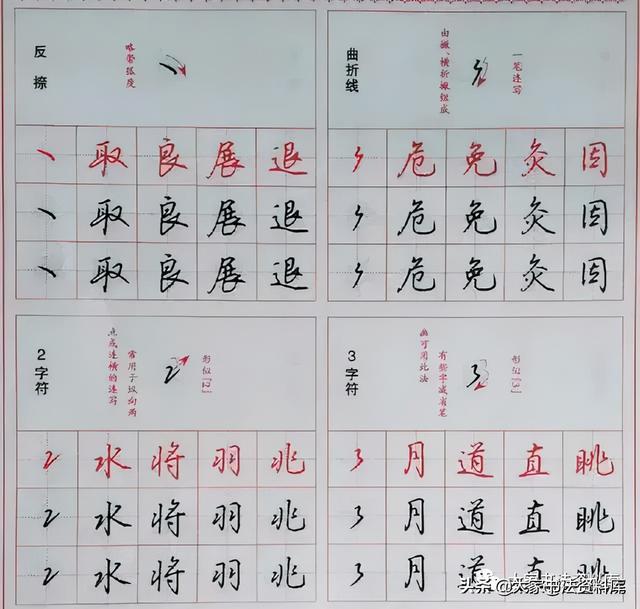 反捺
略带弧度
丶 取 良 展 退
丶 取 良 展 退
丶 取 良 展 退
曲折线
由撇、横折撇组成
一笔连写
危 免 灸 因
危 免 灸 因
危 免 灸 因
2字符
点或连横的连写
常用于纵向两
形似「2」
2 水 将 羽 兆
2 水 将 羽 兆
2 水 将 羽 兆
3字符
画可用此法
有些字减省笔
形似「3」
3 月 道 直 眺
3 月 道 直 眺
3 月 道 直 眺
头条@大家书法资料库